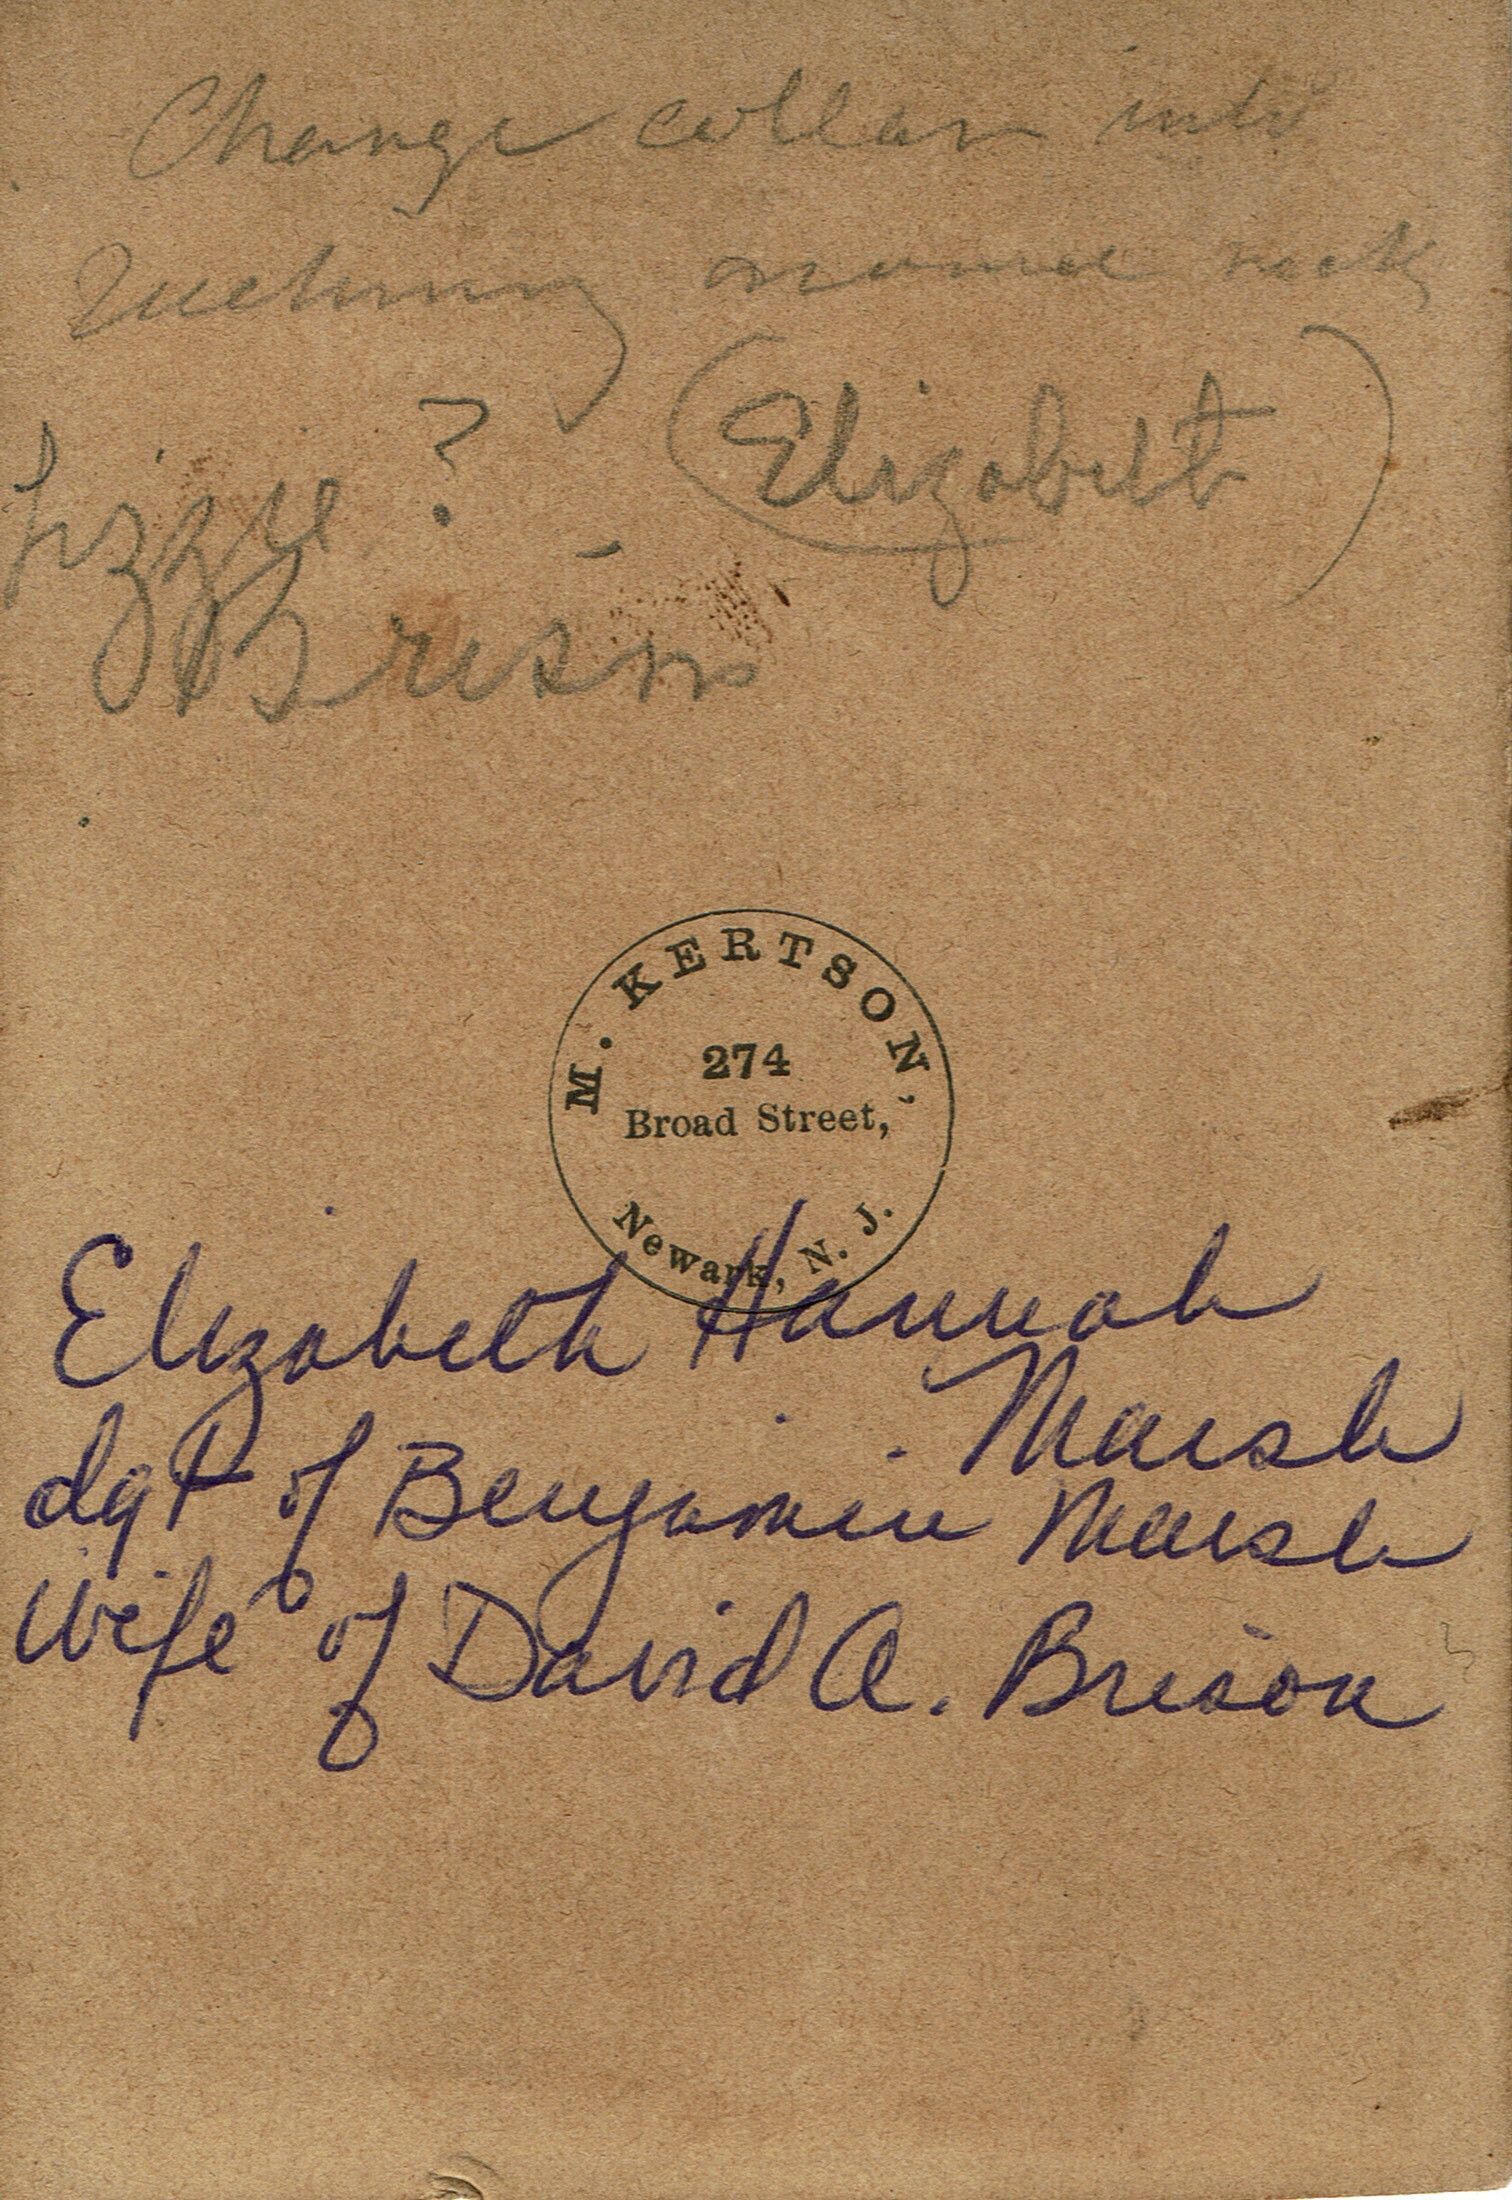 Change collar into
ruching around neck
Lizzie ? (Elizabeth)
Brison
M. KERTSON,
274
Broad Street,
Newark, N. J.
Elizabeth Hannah
Marsh
dgt of Benjamin Marsh
Wife of David A. Brison